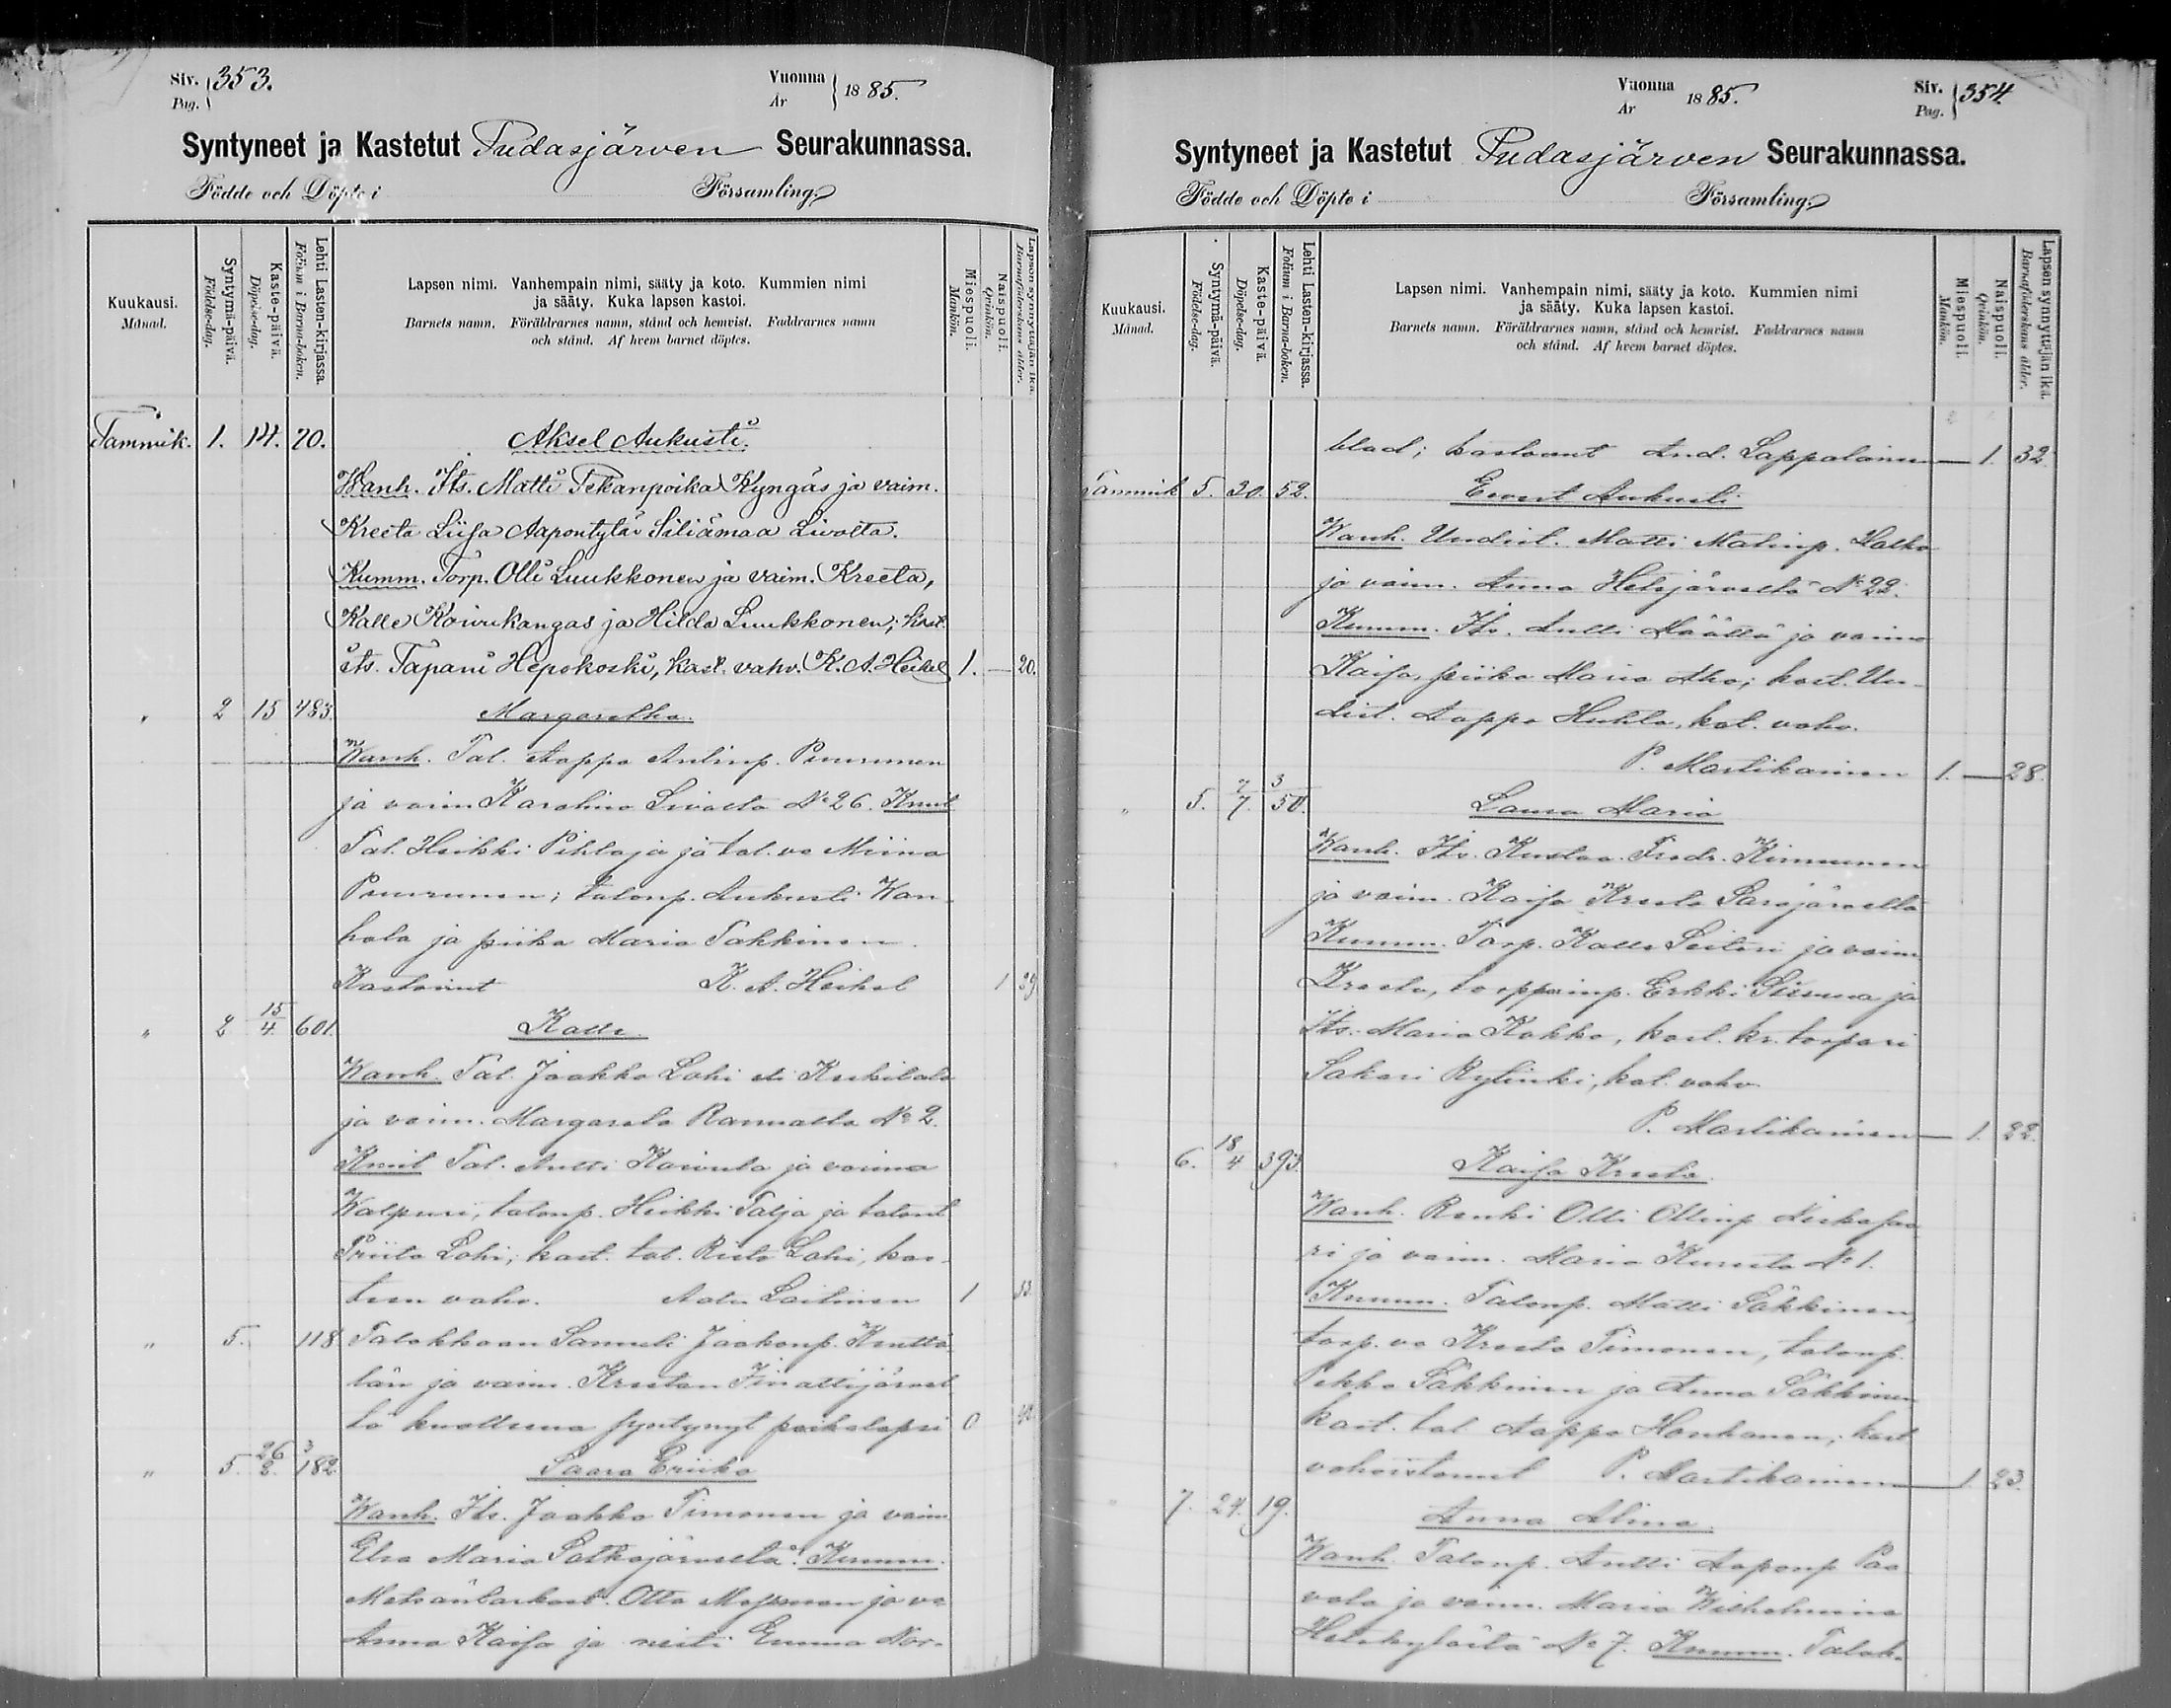 Siv. 353.
Pag.
Vuonna
År 1885.
Syntyneet ja Kastetut Pudasjärven Seurakunnassa.
Födde och Döpte i Församling.
Kuukausi.
Månad.
Syntymä-päivä.
Födelse-dag.
Kaste-päivä.
Döpelse-dag.
Lehti Lasten-kirjassa.
Folium i Barna-boken.
Lapsen nimi. Vanhempain nimi, sääty ja koto. Kummien nimi
ja sääty. Kuka lapsen kastoi.
Barnets namn. Föräldrarnes namn, stånd och hemvist. Faddrarnes namn
och stånd. Af hvem barnet döptes.
Miespuoli.
Mankön.
Naispuoli.
Qvinkön.
Lapsen synnyttäjän ikä.
Barnaföderskans ålder.
Tammik. 1. 14. 20. Aksel Aukusti.
Wanh. Its. Matti Pekanpoika Kyngäs ja vaim.
Kreeta Liisa Aapontytär Siliämaa Livolta.
Kumm. Torp. Olli Luukkonen ja vaim. Kreeta,
Kalle Koivukangas ja Hilda Luukkonen; kast.
its. Tapani Hepokoski, kast. vahv. K. A. Heikel 1. — 20.
" 2 15 483. Margaretha.
Wanh. Tal. Aappo Antinp. Puurunen
ja vaim Karolina Livolta No 26. Kmit
Tal. Heikki Pihlaja ja tal. va Miina
Puurunen; talonp. Aukusti Wan-
hala ja piika Maria Takkinen.
Kastanut K. A. Heikel 1 39
" 2 15/4. 601. Kalle.
Wanh. Tal. Jaakko Lohi eli Kurkilala
ja vaim. Margareta Rannalta No 2.
Kmit Tal. Antti Koivula ja vaimo
Walpuri, talonp. Heikki Talja ja talont
Priita Lohi; kast. tal. Risto Lohi, kas-
teen vahv. Aatu Laitinen 1 33.
" 5. 118 Talokkaan Samuli Jaakonp. Kuttä
län ja vaim. Kreetan Iinattijärvel
tä kuolleena syntynyt poikalapsi 0 40
" 5. 26/2. 3/182. Saara Eriika
Wanh. Its. Jaakko Timonen ja vaim
Elsa Maria Sotkajärveltä. Kumm.
Metsäntarkast. Otto Mossman ja va
Anna Kaisa ja neiti Emma Nor-
Vuonna
År 1885.
Siv. 354.
Pag.
Syntyneet ja Kastetut Pudasjärven Seurakunnassa.
Födde och Döpte i Församling.
Kuukausi.
Månad.
Syntymä-päivä.
Födelse-dag.
Kaste-päivä.
Döpelse-dag.
Lehti Lasten-kirjassa.
Folium i Barna-boken.
Lapsen nimi. Vanhempain nimi, sääty ja koto. Kummien nimi
ja sääty. Kuka lapsen kastoi.
Barnets namn. Föräldrarnes namn, stånd och hemvist. Faddrarnes namn
och stånd. Af hvem barnet döptes.
Miespuoli.
Mankön.
Naispuoli.
Qvinkön.
Lapsen synnyttäjän ikä.
Barnaföderskans ålder.
blad; kastanut And. Lappalainen — 1. 32.
Tammik 5. 20. 52. Evert Aukusti
Wanh. Uudist. Matti Matinp. Halko
ja vaim. Anna Hetejärveltä No 22.
Kumm. Its. Antti Määttä ja vaimo
Kaisa, piika Maria Aho; kast. Uu-
dist. Aappo Huhta, kat. vahv.
P. Martikainen 1. — 28.
" 5. 2/7. 3/50. Laura Maria
Wanh. Its. Kustaa Fredr. Kinnunen
ja vaim. Kaisa Kreeta Sarajärveltä
Kumm. Torp. Kalle Seitari ja vaim
Kreeta, torpparinp. Erkki Siurua ja
Its. Maria Kokko, kast. kr. torpari
Sakari Rytinki, kat. vahv.
P. Martikainen — 1. 22.
6. 18/4 393. Kaisa Kreeta.
Wanh. Renki Olli Ollinp Niskasaa
ri ja vaim. Maria Kurelta No 1.
Kumm. Talonp. Matti Säkkinen,
torp. va Kreeta Timonen, talonp.
Pekka Säkkinen ja Anna Säkkinen
kast. tal Aappo Honkanen; kast
vahvistanut P. Martikainen — 1. 23.
7. 24. 19. Anna Alina.
Wanh. Talonp. Antti Aaponp Paa
vola ja vaim. Maria Wilhelmina
Hetekylästä No 7. Kumm. Talok-